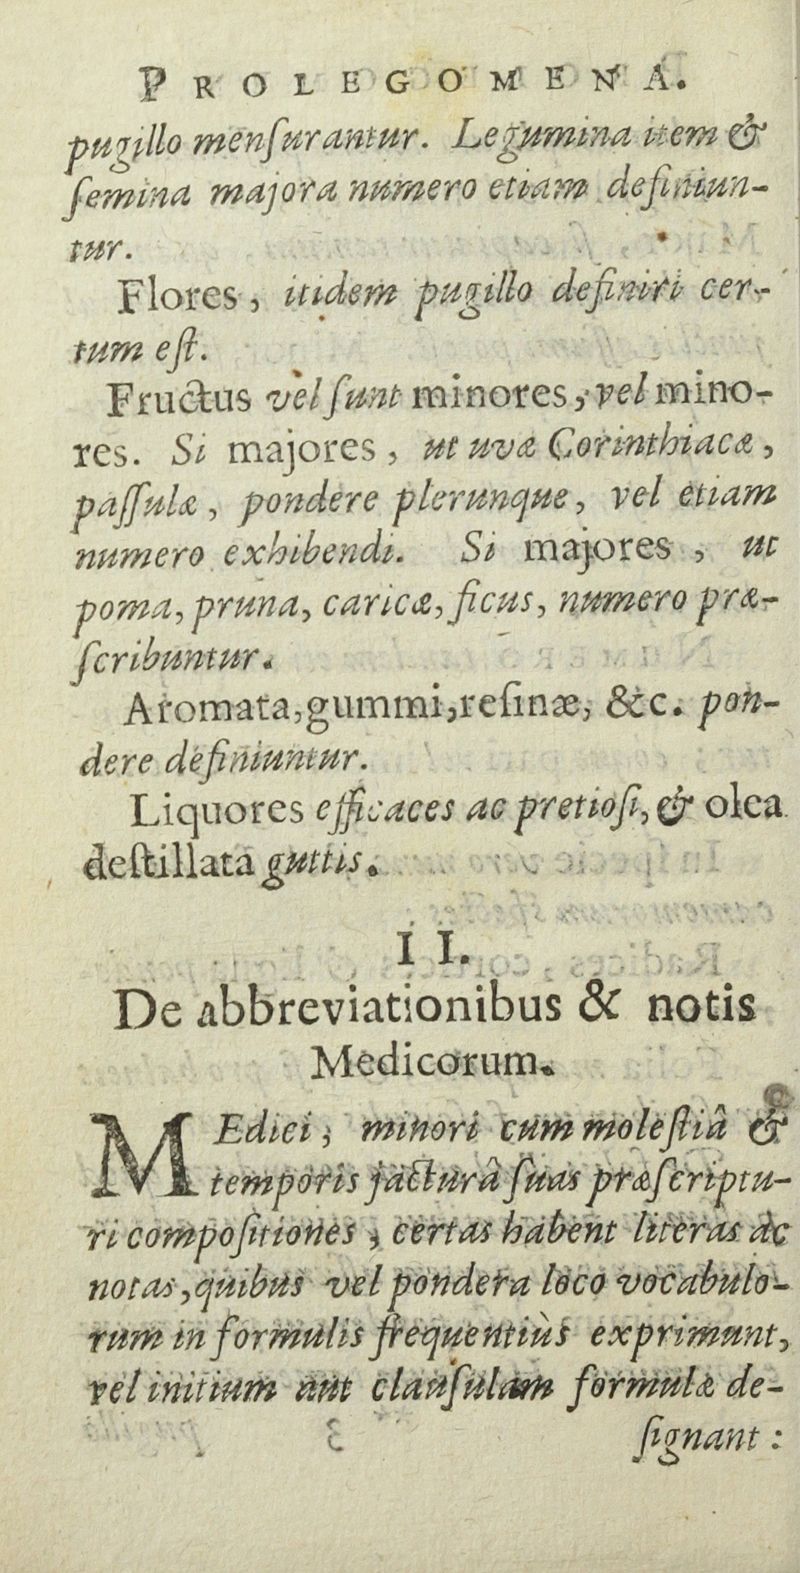 PROLEGOMENA.
pugillo menſurantur. Legumina item &
ſemina majora numero etiam definiun-
tur.
Flores, itidem pugillo definiri cer-
tum eſt.
Fructus vel ſunt minores, vel mino-
res. Si majores, ut uvæ Corinthiacæ,
paſſulæ, pondere plerunque, vel etiam
numero exhibendi. Si majores, ut
poma, pruna, caricæ, ficus, numero præ-
ſcribuntur.
Aromata, gummi, reſinæ, &c. pon-
dere definiuntur.
Liquores efficaces ac pretioſi, & olea
deſtillata guttis.
II.
De abbreviationibus & notis
Medicorum.
MEdici, minori cum moleſtiâ &
temporis jacturâ ſuas præſcriptu-
ri compoſitiones, certas habent literas ac
notas, quibus vel pondera loco vocabulo-
rum in formulis frequentiùs exprimunt,
vel initium aut clauſulam formulæ de-
ſignant: